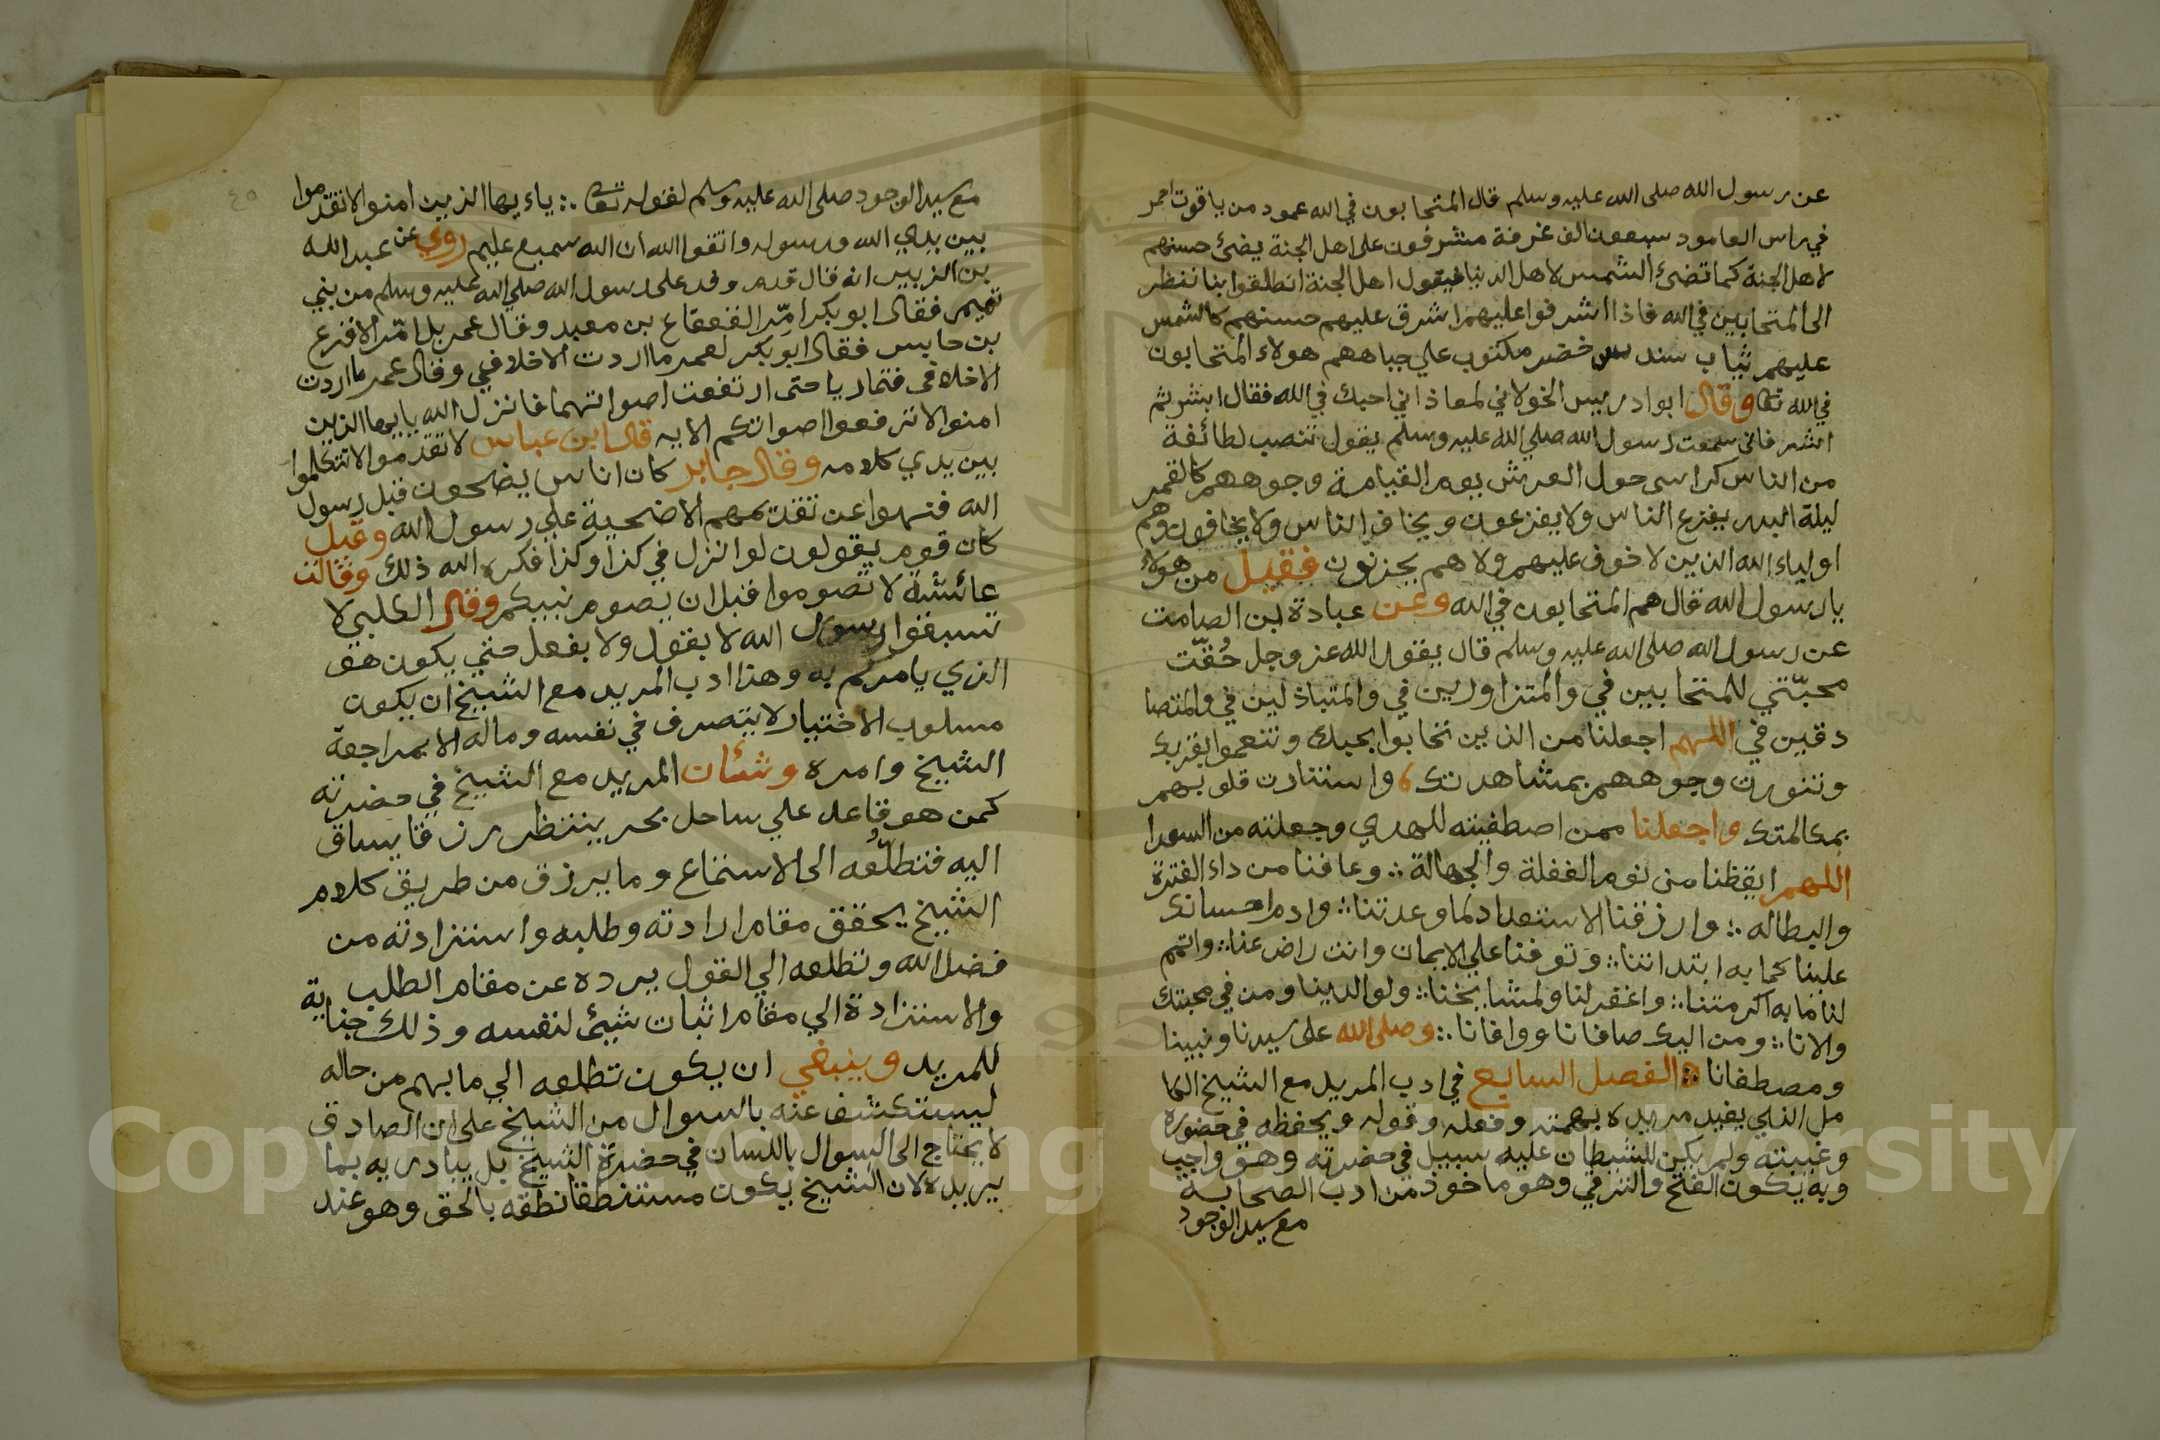 عن رسول الله صلى الله عليه وسلم قال المتحابون في الله عمود من ياقوت احمر
في راس العامود سبعون الف غرفة مشرفون على اهل الجنة يضئ حسنهم
لاهل الجنة كما تضئ الشمس لاهل الدنيا فيقول اهل الجنة انطلقوا بنا ننظر
الى المتحابين في الله فاذا اشرفوا عليهم اشرق عليهم حسنهم كالشمس
عليهم ثياب سندس خضر مكتوب علي جباههم هولاء المتحابون
في الله تعا وقال ابو ادريس الخولاني لمعاذ اني احبك في الله فقال ابشر ثم
ابشر فاني سمعت رسول الله صلي الله عليه وسلم يقول تنصب لطائفة
من الناس كراسى حول العرش يوم القيامة وجوههم كالقمر
ليلة البدر يفزع الناس ولا يفزعون ويخاف الناس ولا يخافون وهم
اولياء الله الذين لا خوف عليهم ولا هم يحزنون فقيل من هولاء
يا رسول الله قال هم المتحابون في الله وعن عبادة ابن الصامت
عن رسول الله صلى الله عليه وسلم قال يقول الله عز وجل حُقّت
محبّتي للمتحابين في والمتزاورين في والمتباذلين في والمتصا
دقين في اللهم اجعلنا من الذين تحابوا بحبك وتنعموا بقربك
وتنورت وجوههم بمشاهدتك واستنارت قلوبهم
بمكالمتك واجعلنا ممن اصطفيته للهدي وجعلته من السعدا
اللهم ايقظنا من نوم الغفلة والجهالة وعافنا من داء الفترة
والبطاله وارزقنا الاستعداد لما وعدتنا وادم احسانك
علينا كما به ابتداتنا وتوفنا علي الايمان وانت راض عنا واتمم
لنا ما به اكرمتنا واغفر لنا ولمشايخنا ولوالدينا ومن في محبتك
والانا ومن اليك صافانا ووافانا وصلى الله على سيدنا ونبينا
ومصطفانا الفصل السابع في ادب المريد مع الشيخ الكا
مل الذي يفيد مريده بهمته وفعله وقوله ويحفظه في حضوره
وغيبته ولم يكن للشيطان عليه سبيل في حضرته وهو واجب
وبه يكون الفتح والترقي وهو ماخوذ من ادب الصحابة
مع سيد الوجود
مع سيد الوجود صلى الله عليه وسلم لقوله تعا ياءيها الذين امنوا لا تقدموا
بين يدي الله ورسوله واتقوا الله ان الله سميع عليم روي عن عبد الله
بن الزبير انه قال قدم وفد على رسول الله صلي الله عليه وسلم من بني
تميم فقال ابو بكر امّر القعقاع بن معبد وقال عمر بل امّر الاقرع
بن حابس فقال ابو بكر لعمر ما اردت الا خلافي وقال عمر ما اردت
الا خلافك فتماريا حتى ارتفعت اصواتهما فانزل الله يا يها الذين
امنوا لا ترفعوا اصواتكم الايه قال ابن عباس لا تقدموا لا تتكلموا
بين يدي كلامه وقال جابر كان اناس يضحون قبل رسول
الله فنهوا عن تقديمهم الاضحية علي رسول الله وقيل
كان قوم يقولون لو انزل في كذا وكذا فكره الله ذلك وقالت
عائشة لا تصوموا قبل ان يصوم نبيكم وقال الكلبي لا
تسبقوا رسول الله لا بقول ولا بفعل حتي يكون هو
الذي يامركم به وهذا ادب المريد مع الشيخ ان يكون
مسلوب الاختيار لا يتصرف في نفسه وماله الا بمراجعة
الشيخ وامره وشئان المريد مع الشيخ في حضرته
كمن هو قاعد علي ساحل بحر ينتظر رزقا يساق
اليه فتطلّعه الى الاستماع وما يرزق من طريق كلام
الشيخ يحقق مقام ارادته وطلبه واستزادته من
فضل الله وتطلعه الي القول يرده عن مقام الطلب
والاستزادة الي مقام اثبات شيئ لنفسه وذلك جناية
للمريد وينبغي ان يكون تطلعه الي ما بهم من حاله
ليستكشف عنه بالسوال من الشيخ على ان الصادق
لا يحتاج الى السوال باللسان في حضرة الشيخ بل يبادريه بما
يريده لان الشيخ يكون مستنطقا نطقه بالحق وهو عند
٤٥
Copyright © King Saud University